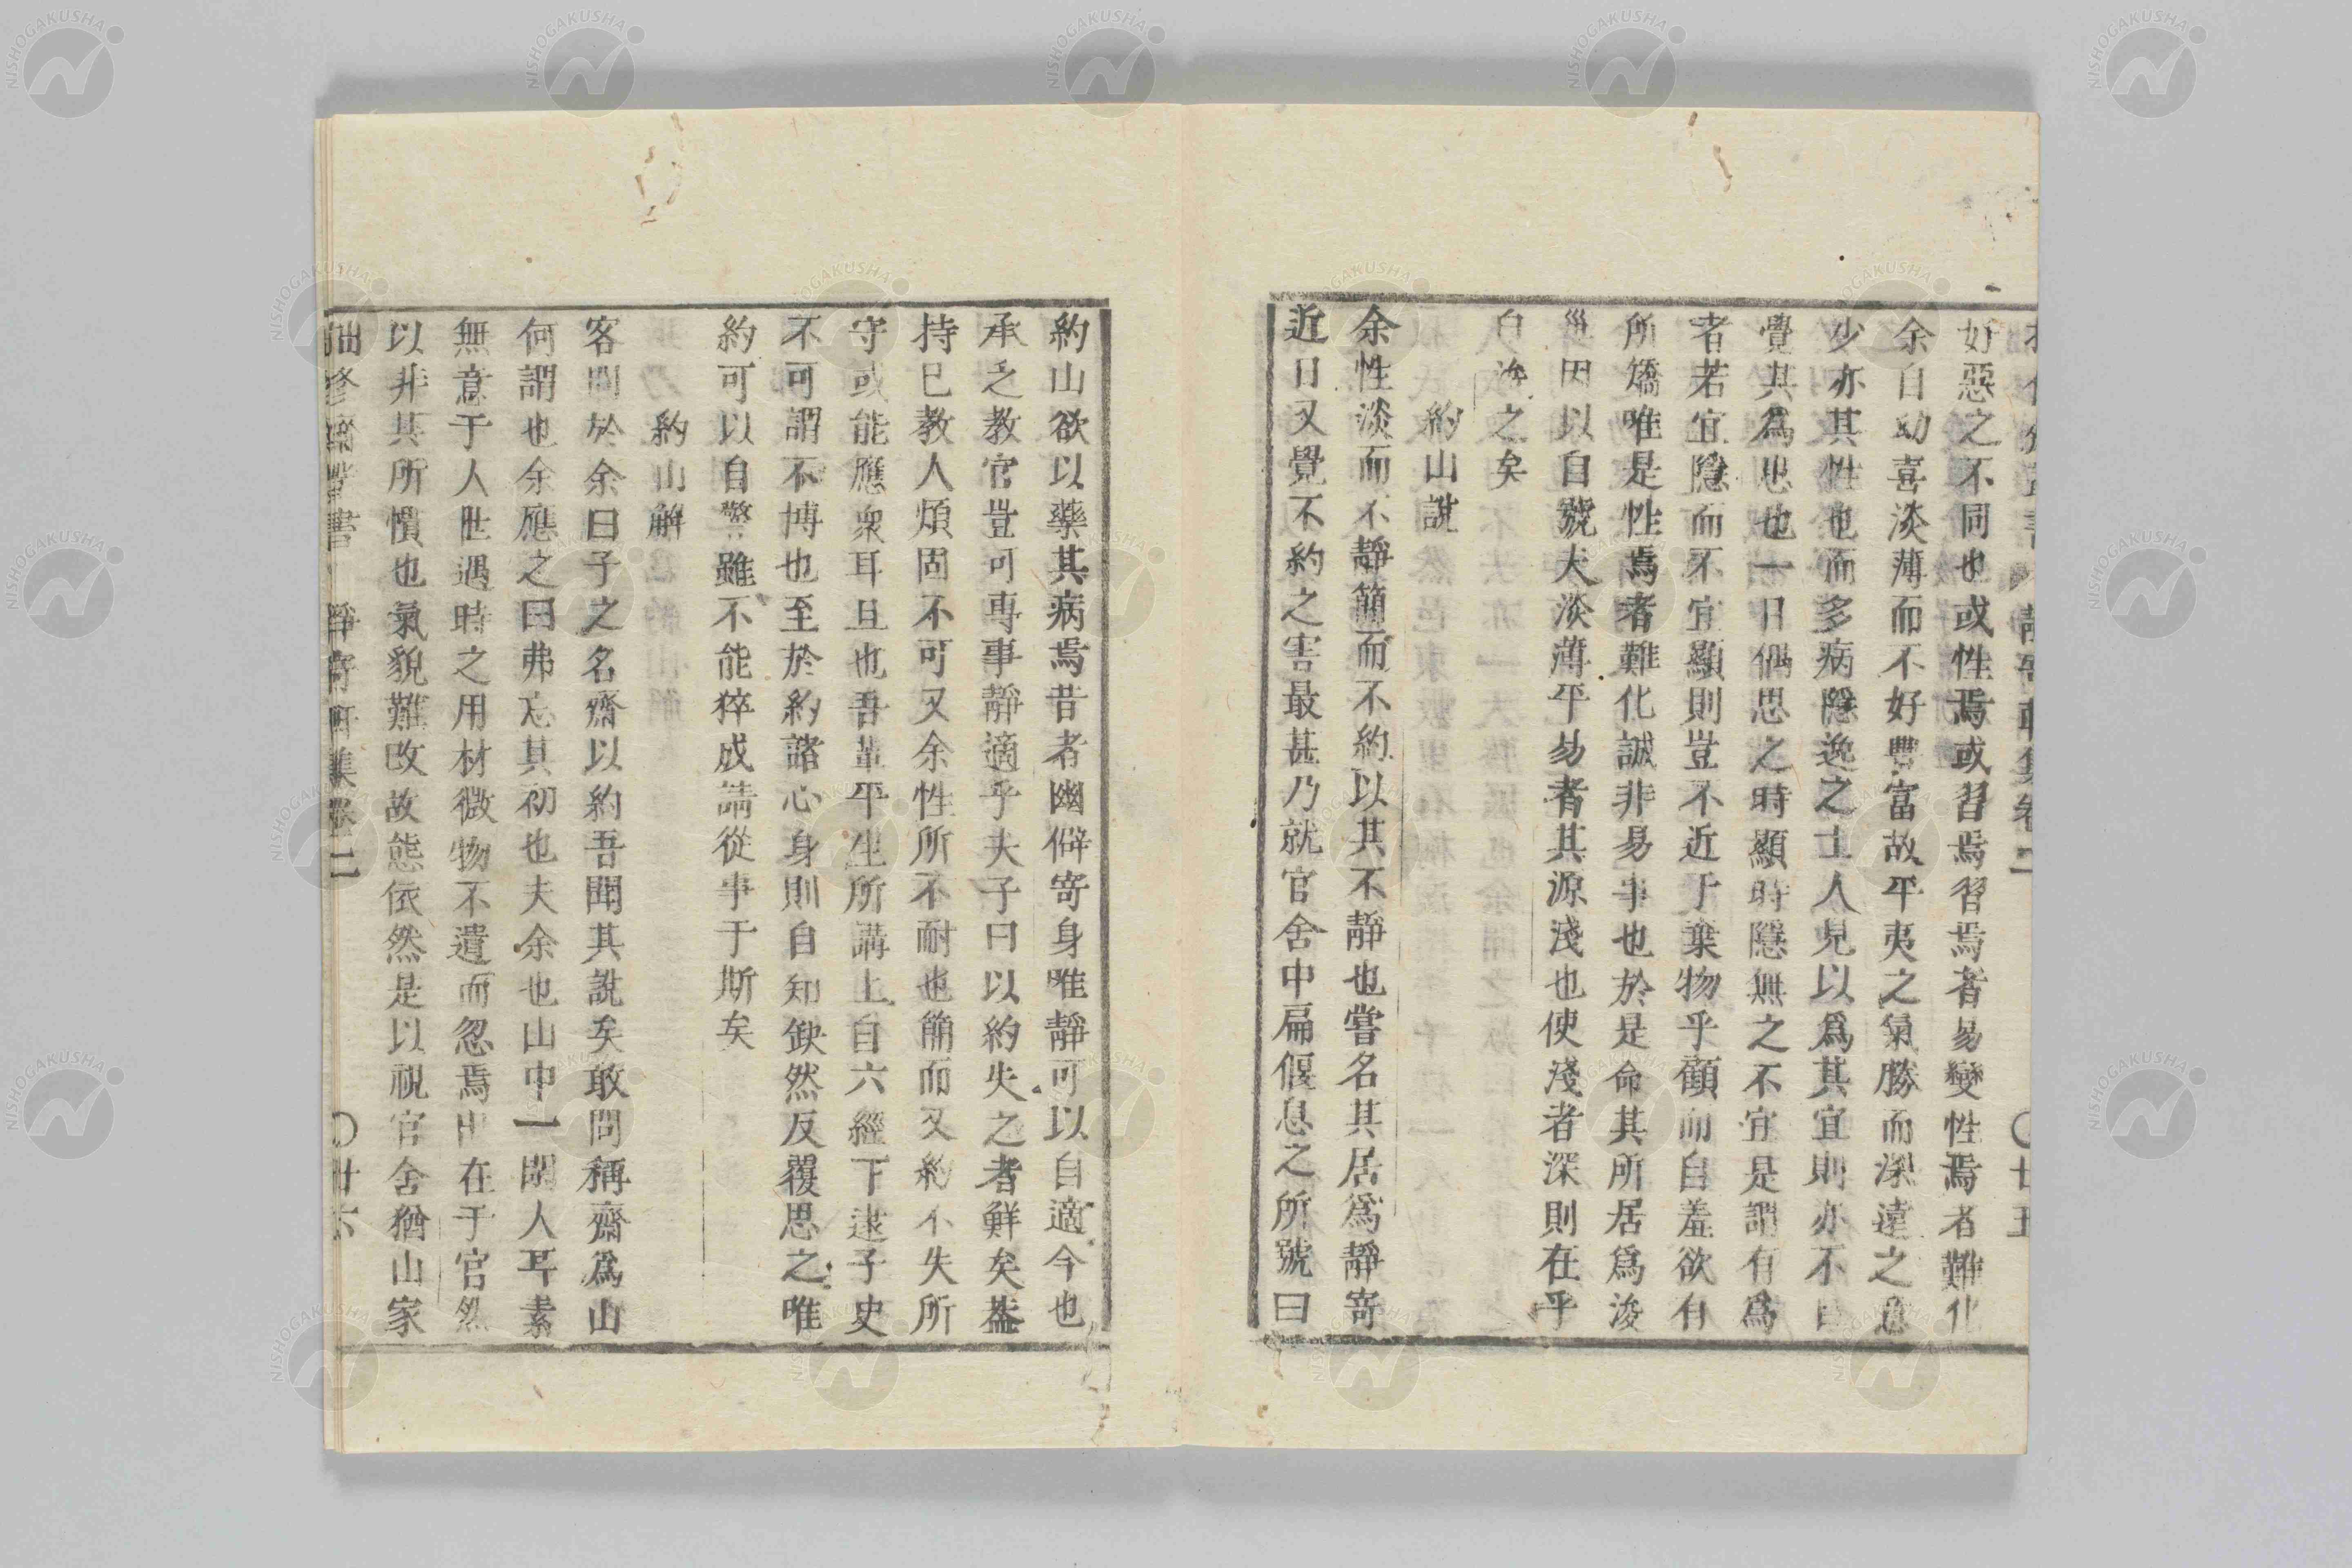 好惡之不同也或性焉或習焉習焉者易變性焉者難化
余自幼喜淡薄而不好豐富故平夷之氣勝而深遠之意
少亦其性也而多病隱逸之士人見以爲其宜則亦不自
覺其爲思也一日偶思之時顯時隱無之不宜是謂有爲
者若宜隱而不宜顯則豈不近于棄物乎顧而自羞欲有
所矯唯是性焉者難化誠非易事也於是命其所居爲浚
巢因以自號夫淡薄平易者其源淺也使淺者深則在乎
自浚之矣
約山說
余性淡而不靜簡而不約以其不靜也嘗名其居爲靜寄
近日又覺不約之害最甚乃就官舍中扁偃息之所號曰
約山欲以藥其病焉昔者幽僻寄身唯靜可以自適今也
承乏教官豈可專事靜適乎夫子曰以約失之者鮮矣蓋
持己教人煩固不可又余性所不耐也簡而又約不失所
守或能應衆耳且也吾輩平生所講上自六經下逮子史
不可謂不博也至於約諸心身則自知缺然反覆思之唯
約可以自警雖不能猝成請從事于斯矣
約山解
客問於余曰子之名齋以約吾聞其說矣敢問稱齋爲山
何謂也余應之曰弗忘其初也夫余也山中一閒人耳素
無意于人世遇時之用材微物不遺而忽焉出在于官然
以非其所慣也氣貌難改故態依然是以視官舍猶山家
拙修齋叢書 靜寄軒集卷二 〇廿六